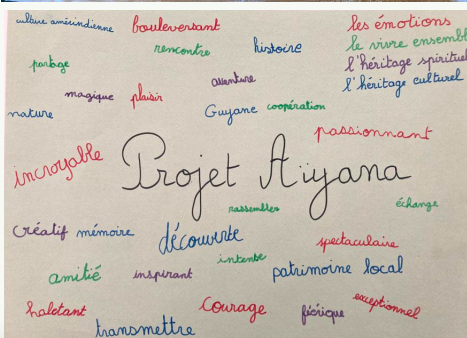 culture amérindienne
bouleversant
les émotions
rencontre
histoire
le vivre ensembl
partage
l'héritage spirituel
aventure
l'héritage culturel
magique
plaisir
nature
Guyane
coopération
passionnant
incroyable
Projet Aiyana
rassembler
échange
créatif
mémoire
découverte
spectaculaire
intente
amitié
inspirant
patrimoine local
haletant
courage
féérique
exceptionnel
transmettre